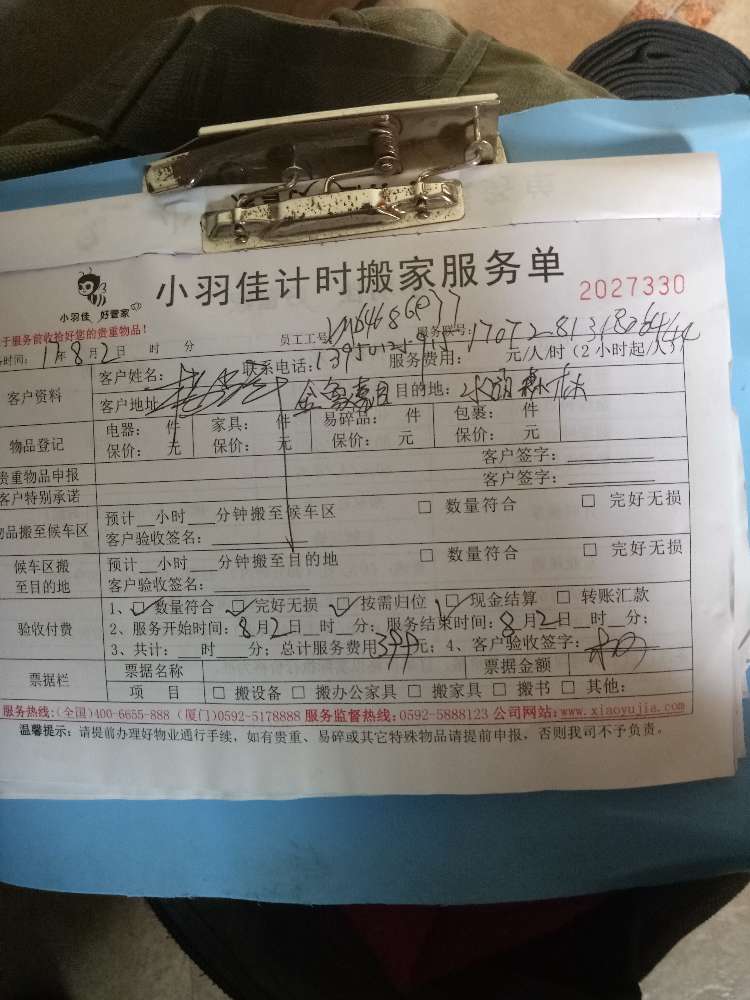 小羽佳 好管家
小羽佳计时搬家服务单 2027330
于服务前收拾好您的贵重物品! 员工工号 服务账号:
时间: 17年8月2日 时 分 联系电话: 服务费用: 元/人/时(2小时起/人)
客户资料 客户姓名:
客户地址 目的地:
物品登记 电器: 件 家具: 件 易碎品: 件 包裹: 件
保价: 元 保价: 元 保价: 元 保价: 元
贵重物品申报 客户签字:
客户特别承诺 客户签字:
物品搬至候车区 预计__小时___分钟搬至候车区 □ 数量符合 □ 完好无损
客户验收签名:
候车区搬至目的地 预计__小时___分钟搬至目的地 □ 数量符合 □ 完好无损
客户验收签名:
验收付费 1、☑数量符合 ☑完好无损 ☑按需归位 ☑现金结算 □ 转账汇款
2、服务开始时间: 8月2日__时__分; 服务结束时间: 8月2日__时__分;
3、共计:__时__分; 总计服务费用 元; 4、客户验收签字:
票据栏 票据名称 票据金额
项 目 □ 搬设备 □ 搬办公家具 □ 搬家具 □ 搬书 □ 其他:
服务热线:(全国)400-6655-888 (厦门)0592-5178888 服务监督热线:0592-5888123 公司网站:www.xiaoyujia.com
温馨提示: 请提前办理好物业通行手续, 如有贵重、易碎或其它特殊物品请提前申报, 否则我司不予负责。